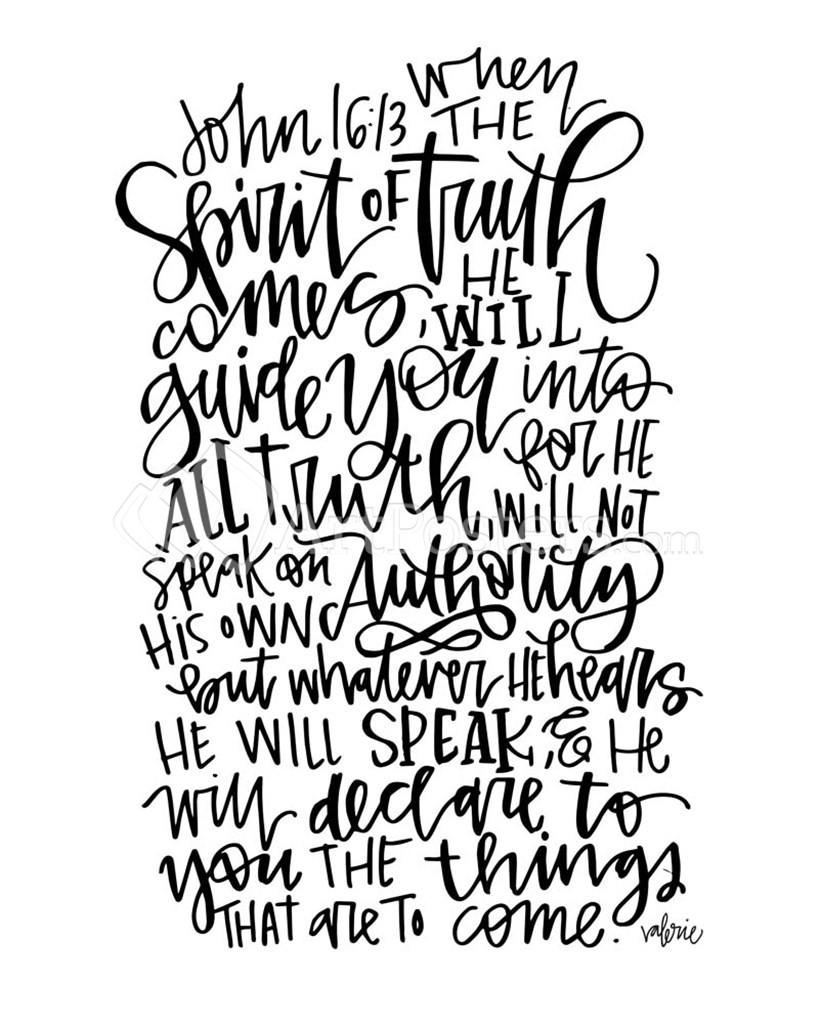 John 16:13 when
THE
Spirit OF truth
comes, HE WILL
guide you into
ALL truth, for HE
WILL NOT
speak on
HIS OWN Authority
but whatever HE hears
HE WILL SPEAK, & He
will declare to
you THE things
THAT are To come.
valerie
ArtPosters.com